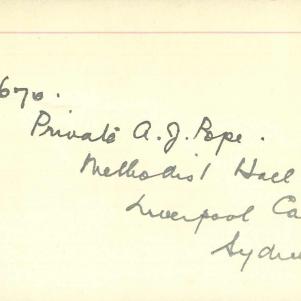 670.
Private A. J. Pope.
Methodist Hall
Liverpool Ca
Sydne